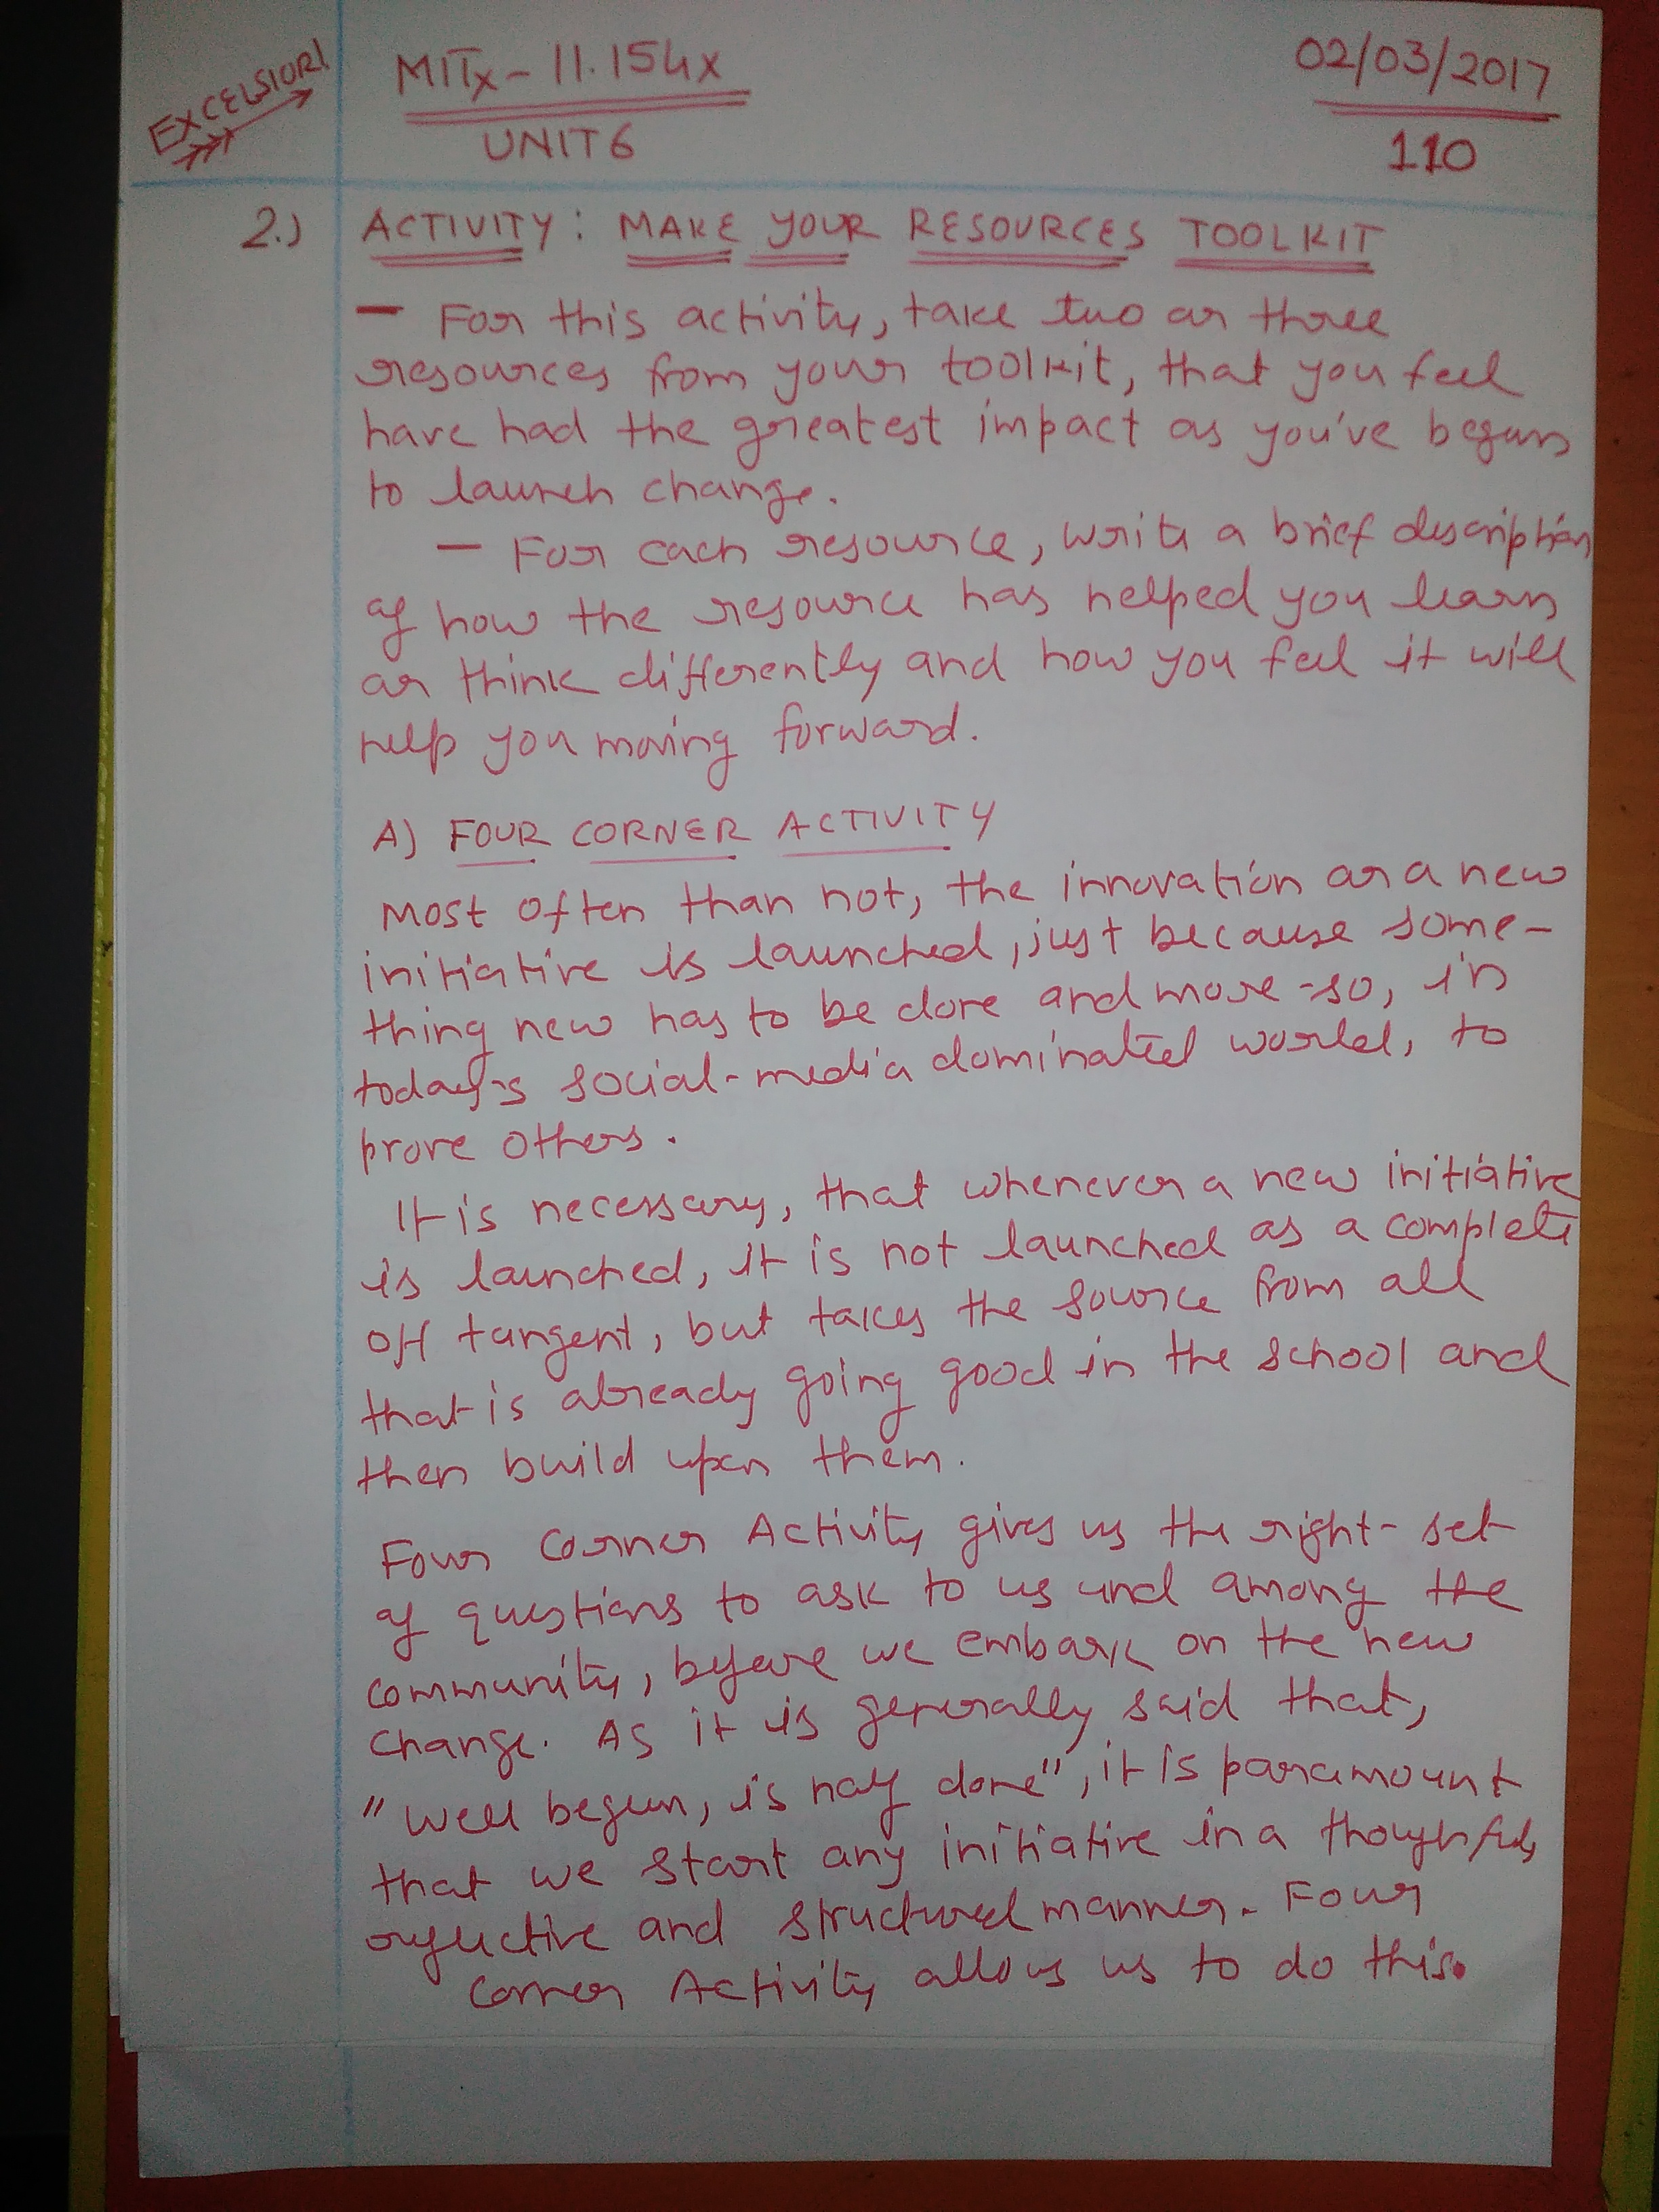 EXCELSIOR!
MITx - 11.154x
02/03/2017
UNIT 6
110
2.) ACTIVITY: MAKE YOUR RESOURCES TOOLKIT
— For this activity, take two or three
resources from your toolkit, that you feel
have had the greatest impact as you've begun
to launch change.
— For each resource, write a brief description
of how the resource has helped you learn
or think differently and how you feel it will
help you moving forward.
A) FOUR CORNER ACTIVITY
Most often than not, the innovation or a new
initiative is launched, just because some-
thing new has to be done and more-so, in
today's social-media dominated world, to
prove others.
It is necessary, that whenever a new initiative
is launched, it is not launched as a complete
off tangent, but takes the source from all
that is already going good in the school and
then build upon them.
Four Corner Activity gives us the right-set
of questions to ask to us and among the
community, before we embark on the new
change. As it is generally said that,
"Well begun, is half done", it is paramount
that we start any initiative in a thoughtful,
reflective and structured manner. Four
Corner Activity allows us to do this.